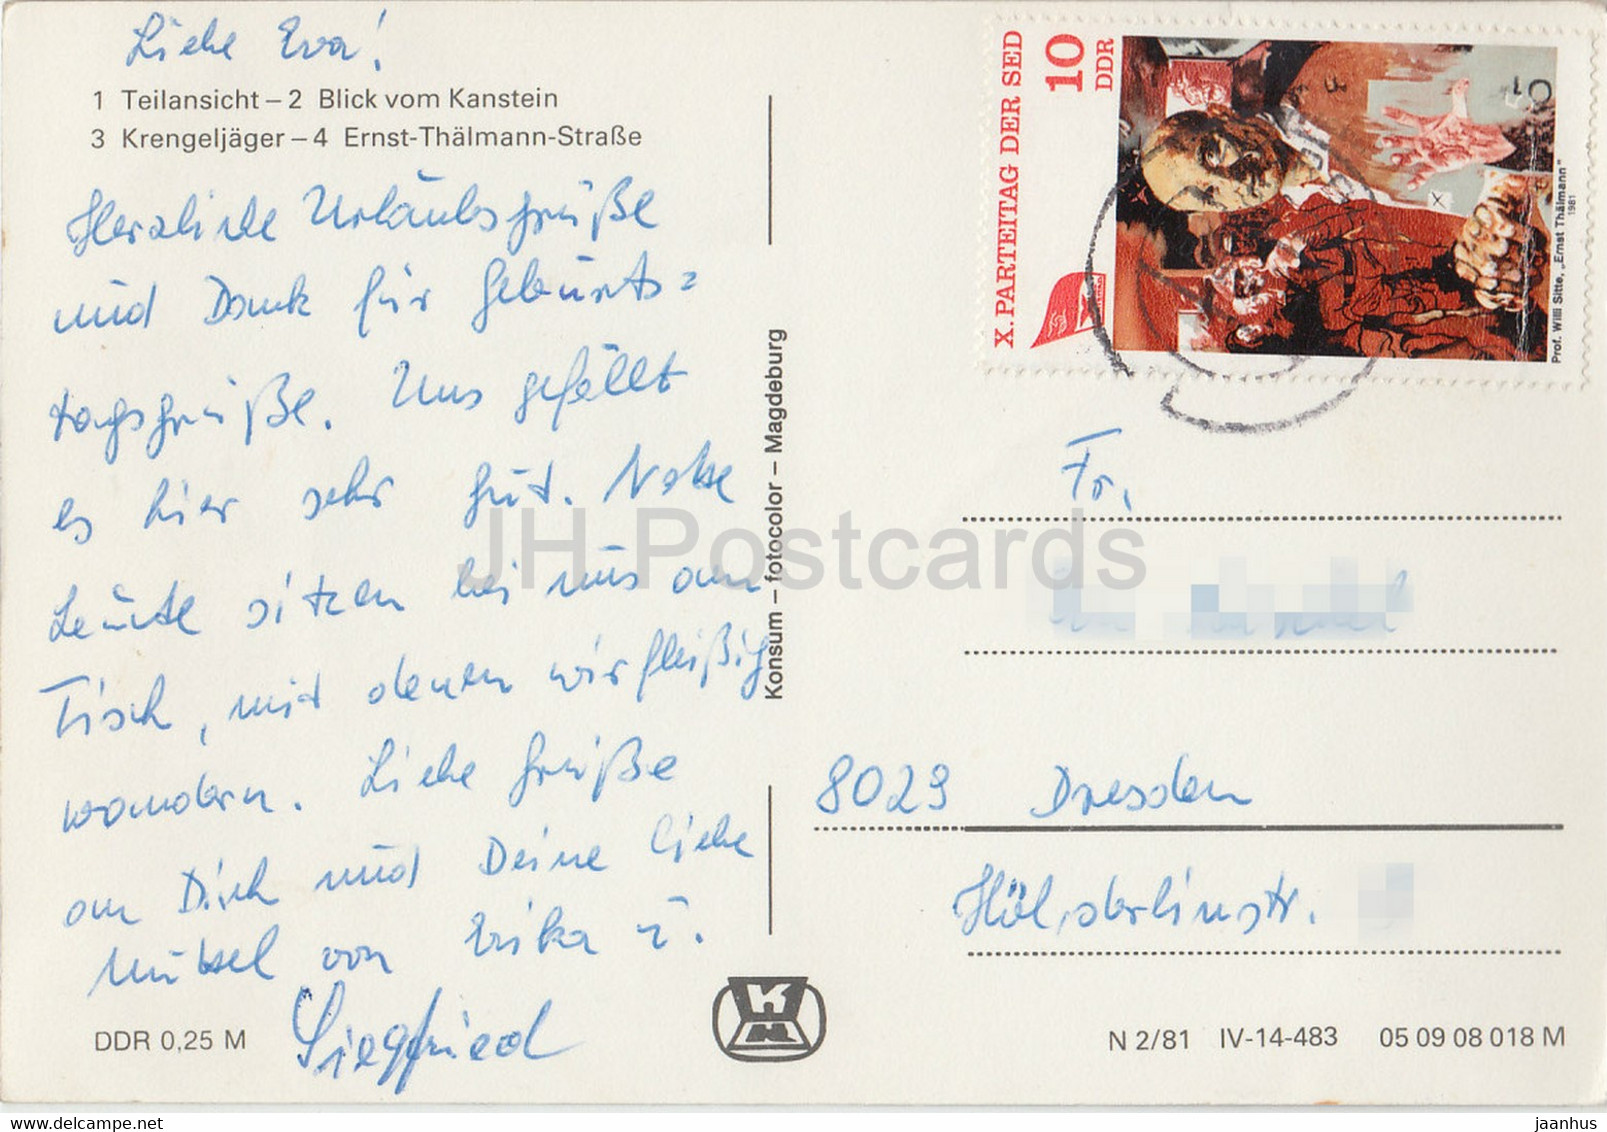 Liebe Eva!
1 Teilansicht – 2 Blick vom Kanstein
3 Krengeljäger – 4 Ernst-Thälmann-Straße
Herzliche Urlaubsgrüße
und Dank für Geburts=
tagsgrüße. Uns gefällt
es hier sehr gut. Nette
Leute sitzen bei uns am
Tisch, mit denen wir fleißig
wandern. Liebe Grüße
an Dich und Deine liebe
von Erika u.
Siegfried
DDR 0,25 M
Konsum – fotocolor – Magdeburg
X. PARTEITAG DER SED
10
DDR
Prof. Willi Sitte, „Ernst Thälmann"
1981
Fr.
8023 Dresden
Hölderlinstr.
N 2/81 IV-14-483 05 09 08 018 M
JH Postcards
jaanhus